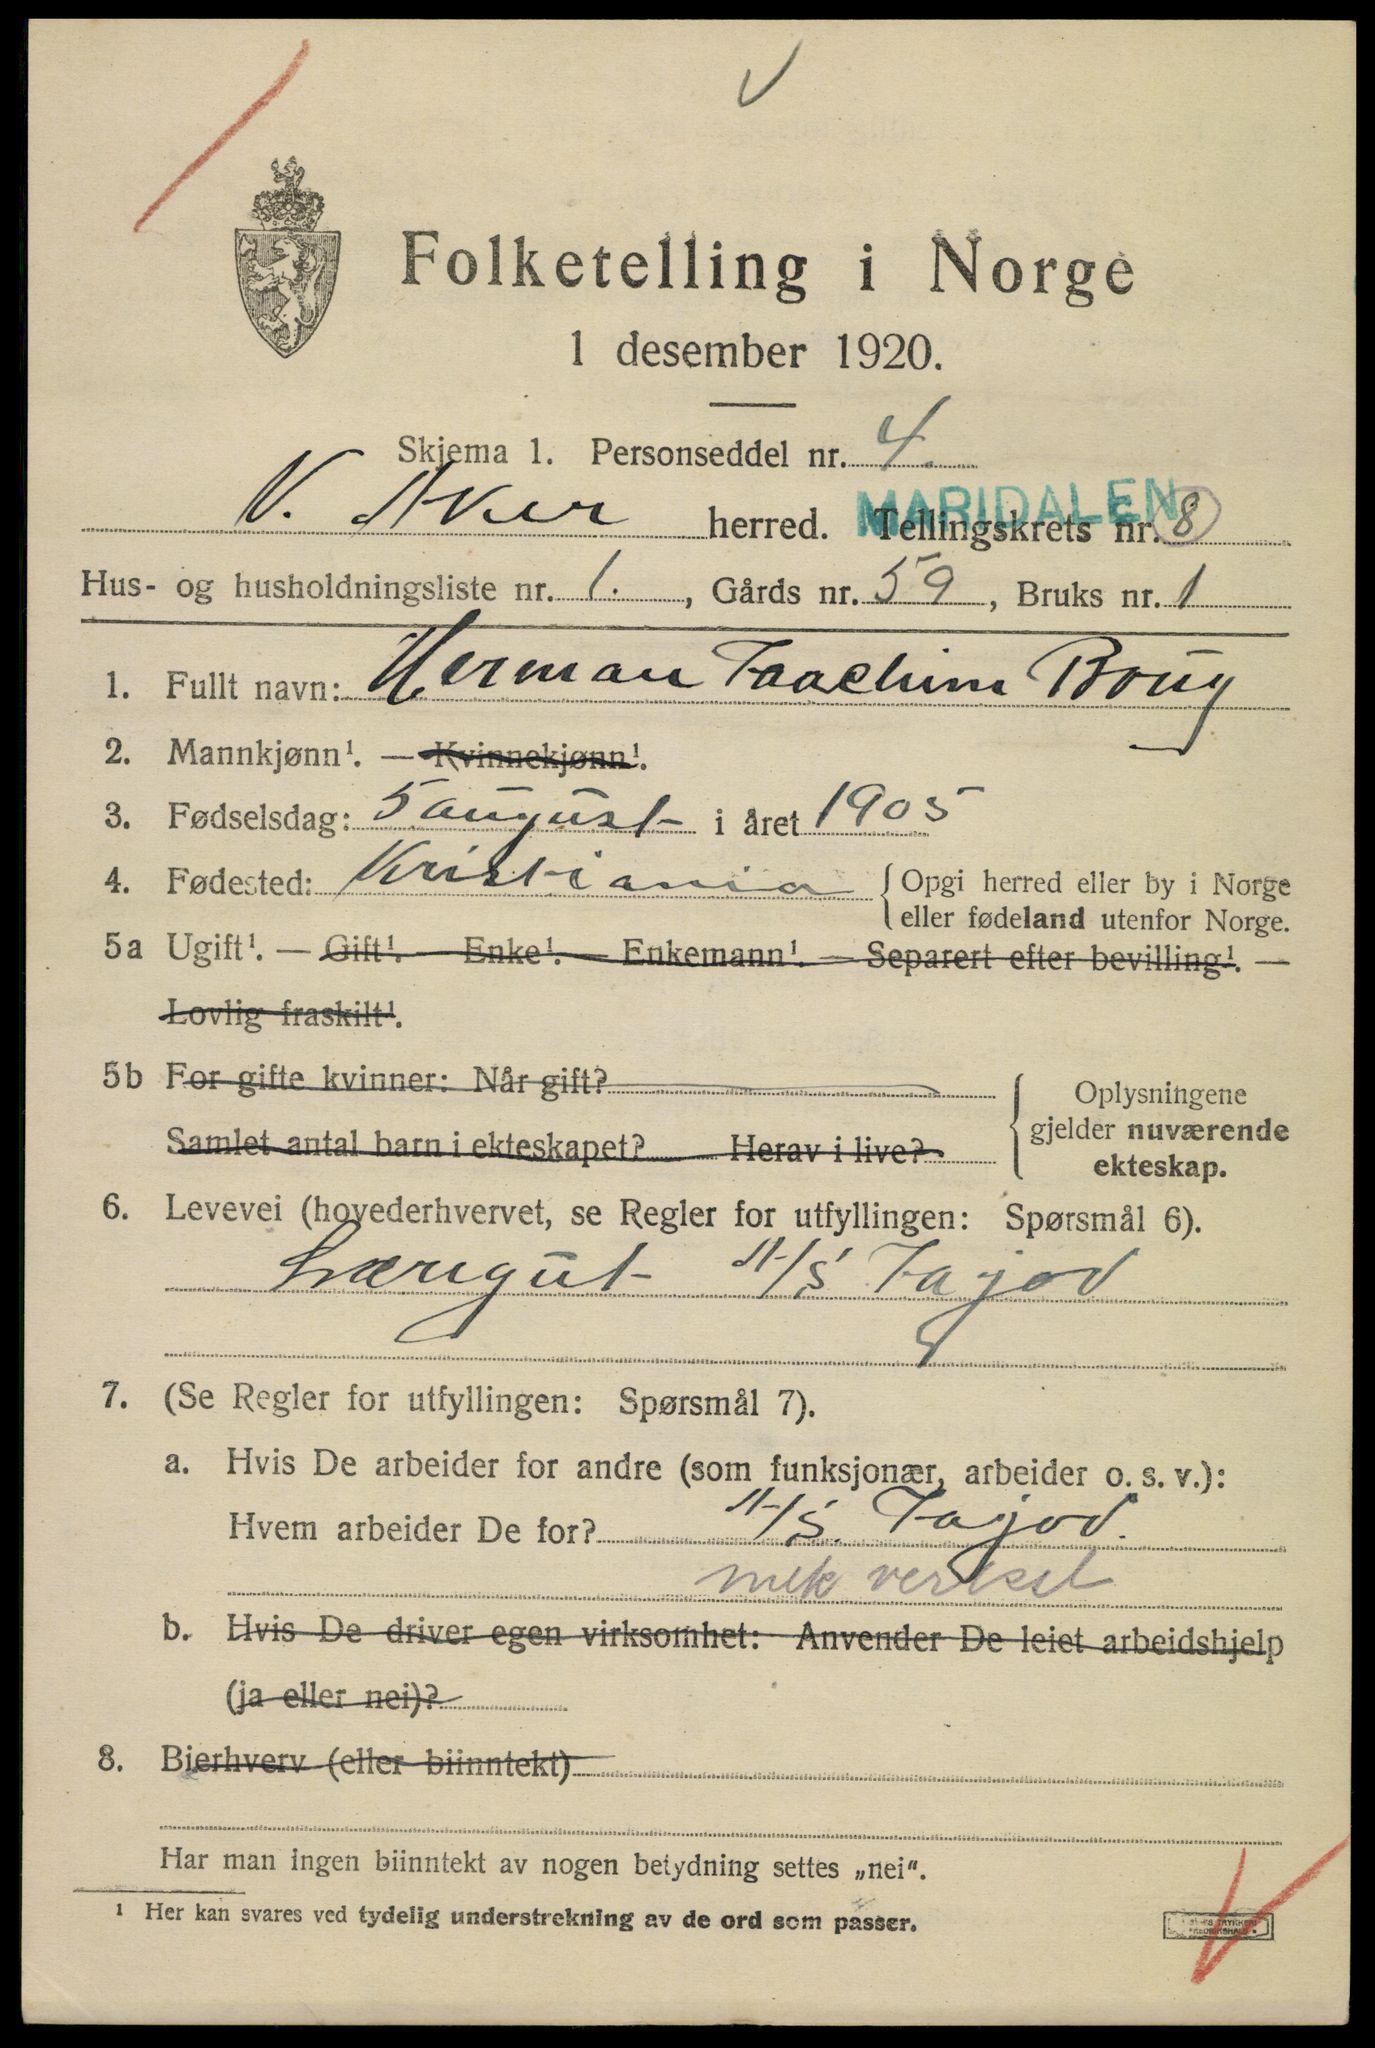 Folketelling i Norge
1 desember 1920.
Skjema 1. Personseddel nr. 4.
V. Aker herred. MARIDALEN Tellingskrets nr. 8
Hus- og husholdningsliste nr. 1. , Gårds nr. 59 , Bruks nr. 1
1. Fullt navn: Herman Joachim Boug
2. Mannkjønn¹. — Kvinnekjønn¹.
3. Fødselsdag: 5 august i året 1905
4. Fødested: Kristiania { Opgi herred eller by i Norge
eller fødeland utenfor Norge.
5a Ugift¹. — Gift¹. — Enke¹. — Enkemann¹. — Separert efter bevilling¹. —
Lovlig fraskilt¹.
5b For gifte kvinner: Når gift?
Samlet antal barn i ekteskapet? Herav i live?
{ Oplysningene
gjelder nuværende
ekteskap.
6. Levevei (hovederhvervet, se Regler for utfyllingen: Spørsmål 6).
Læregut A/S Jajod
7. (Se Regler for utfyllingen: Spørsmål 7).
a. Hvis De arbeider for andre (som funksjonær, arbeider o. s. v.):
Hvem arbeider De for? A/S. Jajod.
mek verkst
b. Hvis De driver egen virksomhet: Anvender De leiet arbeidshjelp
(ja eller nei)?
8. Bierhverv (eller biinntekt)
Har man ingen biinntekt av nogen betydning settes „nei".
¹ Her kan svares ved tydelig understrekning av de ord som passer.